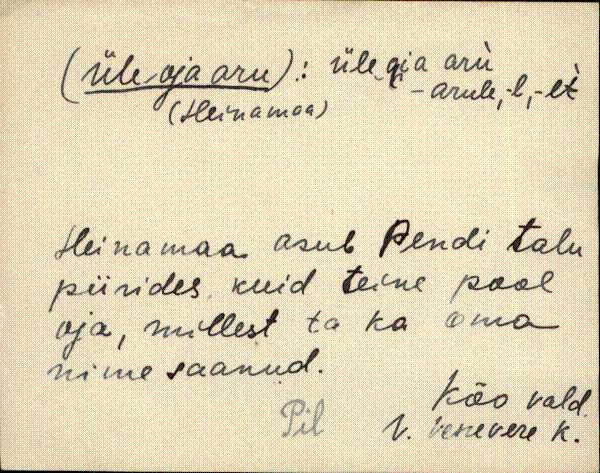 (Üle oja aru): üle oja arù
(Heinamaa) -arule, -l, -lt
Heinamaa asub Pendi talu
piirides, kuid teine pool
oja, millest ta ka oma
nime saanud.
Pil Kõo vald.
V. Venevere k.